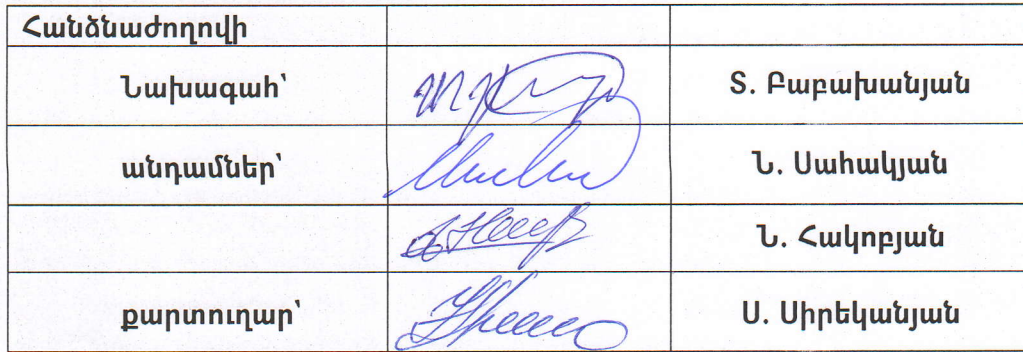 Հանձնաժողովի
Նախագահ՝ Տ. Բաբախանյան
անդամներ՝ Ն. Սահակյան
Ն. Հակոբյան
քարտուղար՝ Ս. Սիրեկանյան